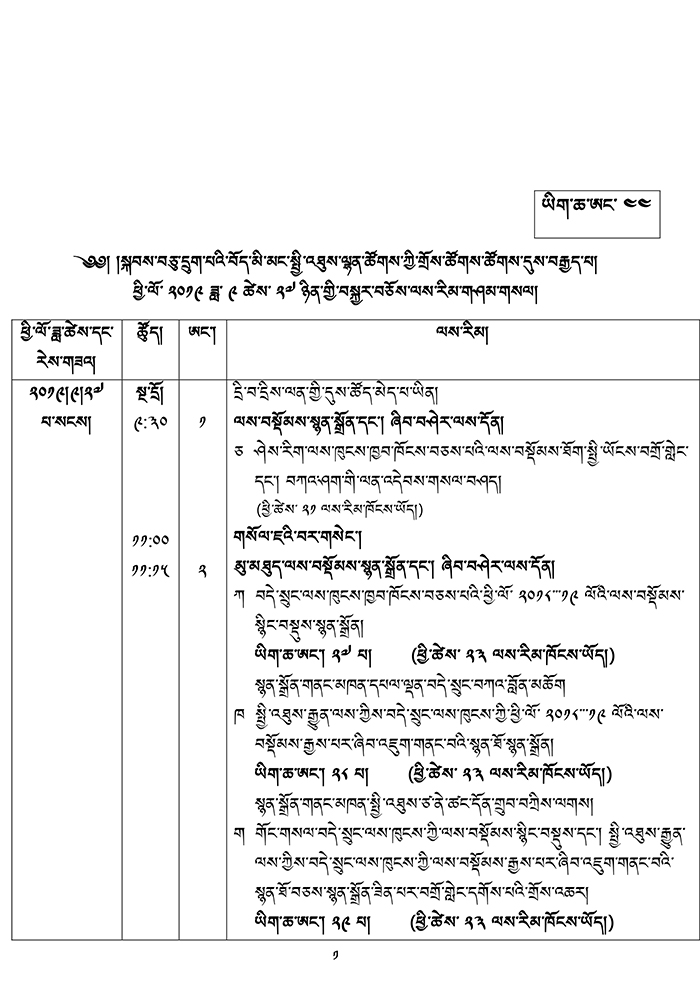 ཡིག་ཆ་ཨང་ ༤༤
༄༅། །སྐབས་བཅུ་དྲུག་པའི་བོད་མི་མང་སྤྱི་འཐུས་ལྷན་ཚོགས་ཀྱི་གྲོས་ཚོགས་ཚོགས་དུས་བརྒྱད་པ།
ཕྱི་ལོ་ ༢༠༡༩ ཟླ་ ༩ ཚེས་ ༢༧ ཉིན་གྱི་བསྐྱར་བཅོས་ལས་རིམ་གཤམ་གསལ།
ཕྱི་ལོ་ཟླ་ཚེས་དང་ ཆུཚོད། ཨང་། ལས་རིམ།
རེས་གཟའ།
༢༠༡༩།༩།༢༧ སྔ་དྲོ། དྲི་བ་དྲིས་ལན་གྱི་དུས་ཚོད་མེད་པ་ཡིན།
པ་སངས། ༩:༣༠ ༡ ལས་བསྡོམས་སྙན་སྒྲོན་དང་། ཞིབ་བཤེར་ལས་དོན།
ཅ ཤེས་རིག་ལས་ཁུངས་ཁྱབ་ཁོངས་བཅས་པའི་ལས་བསྡོམས་ཐོག་སྤྱི་ཡོངས་བགྲོ་གླེང་
དང་། བཀའ་ཤག་གི་ལན་འདེབས་གསལ་བཤད།
(ཕྱི་ཚེས་ ༢༡ ལས་རིམ་ཁོངས་ཡོད།)
༡༡:༠༠ གསོལ་ཇའི་བར་གསེང་།
༡༡:༡༥ ༢ མུ་མཐུད་ལས་བསྡོམས་སྙན་སྒྲོན་དང་། ཞིབ་བཤེར་ལས་དོན།
ཀ བདེ་སྲུང་ལས་ཁུངས་ཁྱབ་ཁོངས་བཅས་པའི་ཕྱི་ལོ་ ༢༠༡༨་་་༡༩ ལོའི་ལས་བསྡོམས་
སྙིང་བསྡུས་སྙན་སྒྲོན།
ཡིག་ཆ་ཨང་། ༢༧ པ། (ཕྱི་ཚེས་ ༢༣ ལས་རིམ་ཁོངས་ཡོད།)
སྙན་སྒྲོན་གནང་མཁན་དཔལ་ལྡན་བདེ་སྲུང་བཀའ་བློན་མཆོག
ཁ སྤྱི་འཐུས་རྒྱུན་ལས་ཀྱིས་བདེ་སྲུང་ལས་ཁུངས་ཀྱི་ཕྱི་ལོ་ ༢༠༡༨་་་༡༩ ལོའི་ལས་
བསྡོམས་རྒྱས་པར་ཞིབ་འཇུག་གནང་བའི་སྙན་ཐོ་སྙན་སྒྲོན།
ཡིག་ཆ་ཨང་། ༢༨ པ། (ཕྱི་ཚེས་ ༢༣ ལས་རིམ་ཁོངས་ཡོད།)
སྙན་སྒྲོན་གནང་མཁན་སྤྱི་འཐུས་ཙ་ནེ་ཚང་དོན་གྲུབ་བཀྲིས་ལགས།
ག གོང་གསལ་བདེ་སྲུང་ལས་ཁུངས་ཀྱི་ལས་བསྡོམས་སྙིང་བསྡུས་དང་། སྤྱི་འཐུས་རྒྱུན་
ལས་ཀྱིས་བདེ་སྲུང་ལས་ཁུངས་ཀྱི་ལས་བསྡོམས་རྒྱས་པར་ཞིབ་འཇུག་གནང་བའི་
སྙན་ཐོ་བཅས་སྙན་སྒྲོན་ཟིན་པར་བགྲོ་གླེང་དགོས་པའི་གྲོས་འཆར།
ཡིག་ཆ་ཨང་། ༢༩ པ། (ཕྱི་ཚེས་ ༢༣ ལས་རིམ་ཁོངས་ཡོད།)
༡